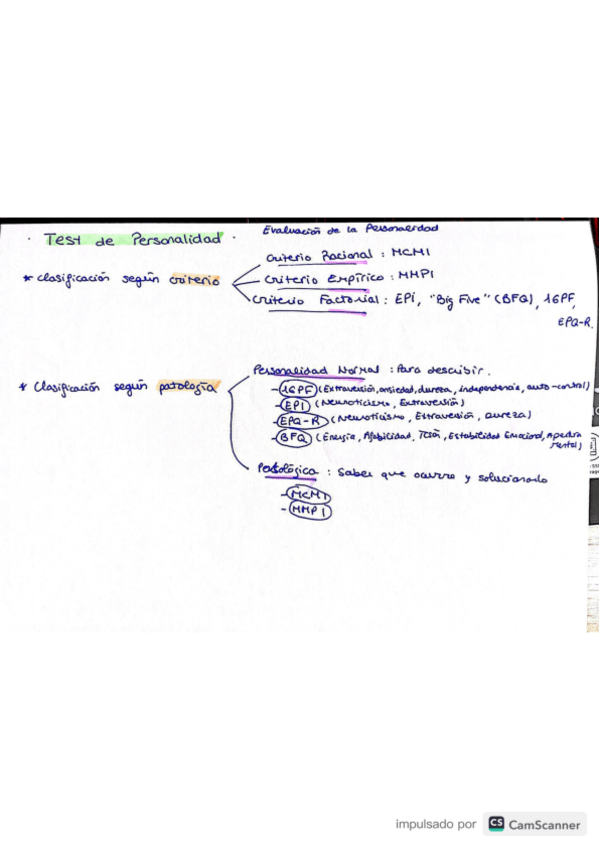 Evaluación de la Personalidad
· Test de Personalidad ·
* Clasificación según criterio
Criterio Racional : MCMI
Criterio Empírico : MMPI
Criterio Factorial : EPI, "Big Five" (BFQ), 16PF,
EPQ-R.
* Clasificación según patología
Personalidad Normal : Para describir.
- 16PF (Extraversión, ansiedad, dureza, independencia, auto-control)
- EPI (Neuroticismo, Extraversión)
- EPQ-R (Neuroticismo, Extraversión, dureza)
- BFQ (Energía, Afabilidad, Tesón, Estabilidad Emocional, Apertura
Mental)
Patológica : Saber que ocurre y solucionarlo
- MCMI
- MMPI
impulsado por CS CamScanner